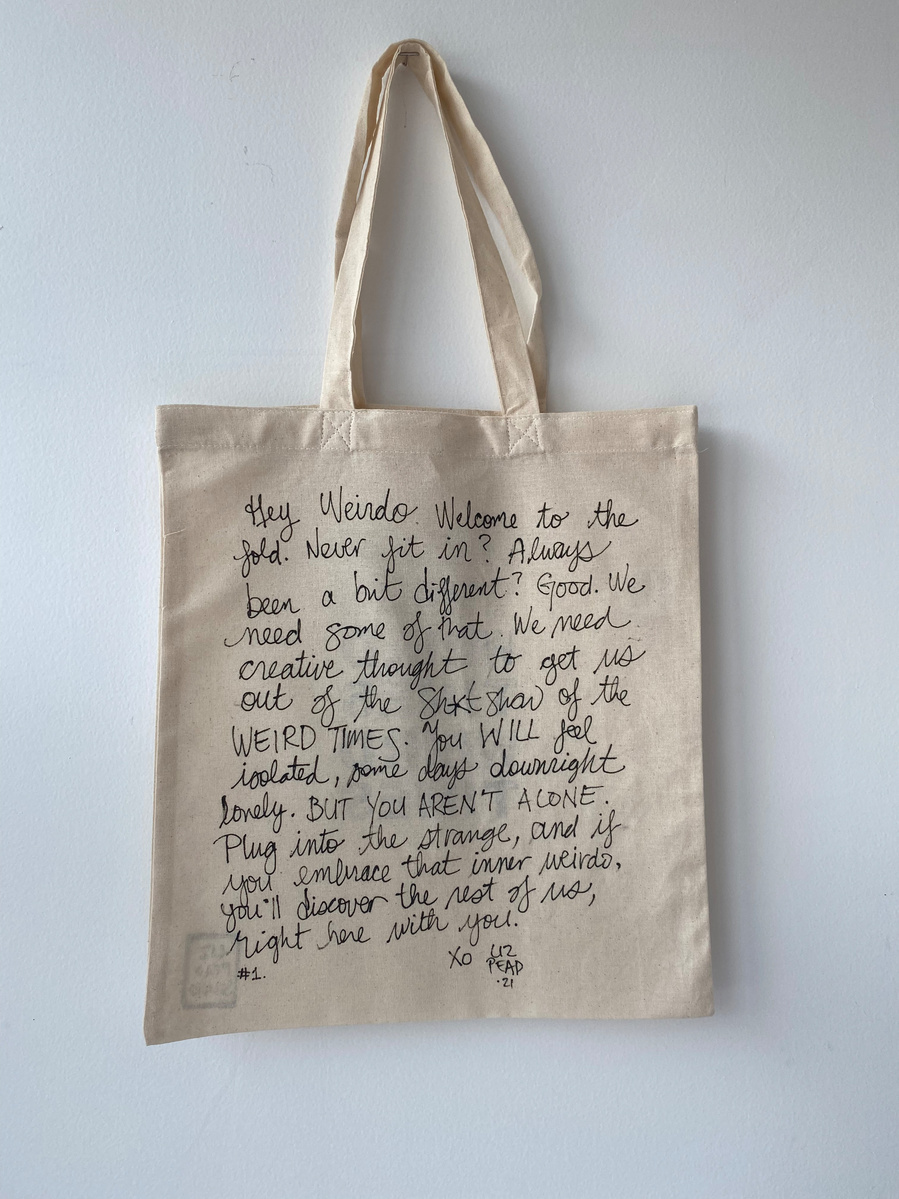 Hey Weirdo. Welcome to the
fold. Never fit in? Always
been a bit different? Good. We
need some of that. We need
creative thought to get us
out of the Sh*t Show of the
WEIRD TIMES. You WILL feel
isolated, some days downright
lonely. BUT YOU AREN'T ALONE.
Plug into the strange, and if
you embrace that inner weirdo,
you'll discover the rest of us,
right here with you.
#1.
XO LIZ
PEAD
·21